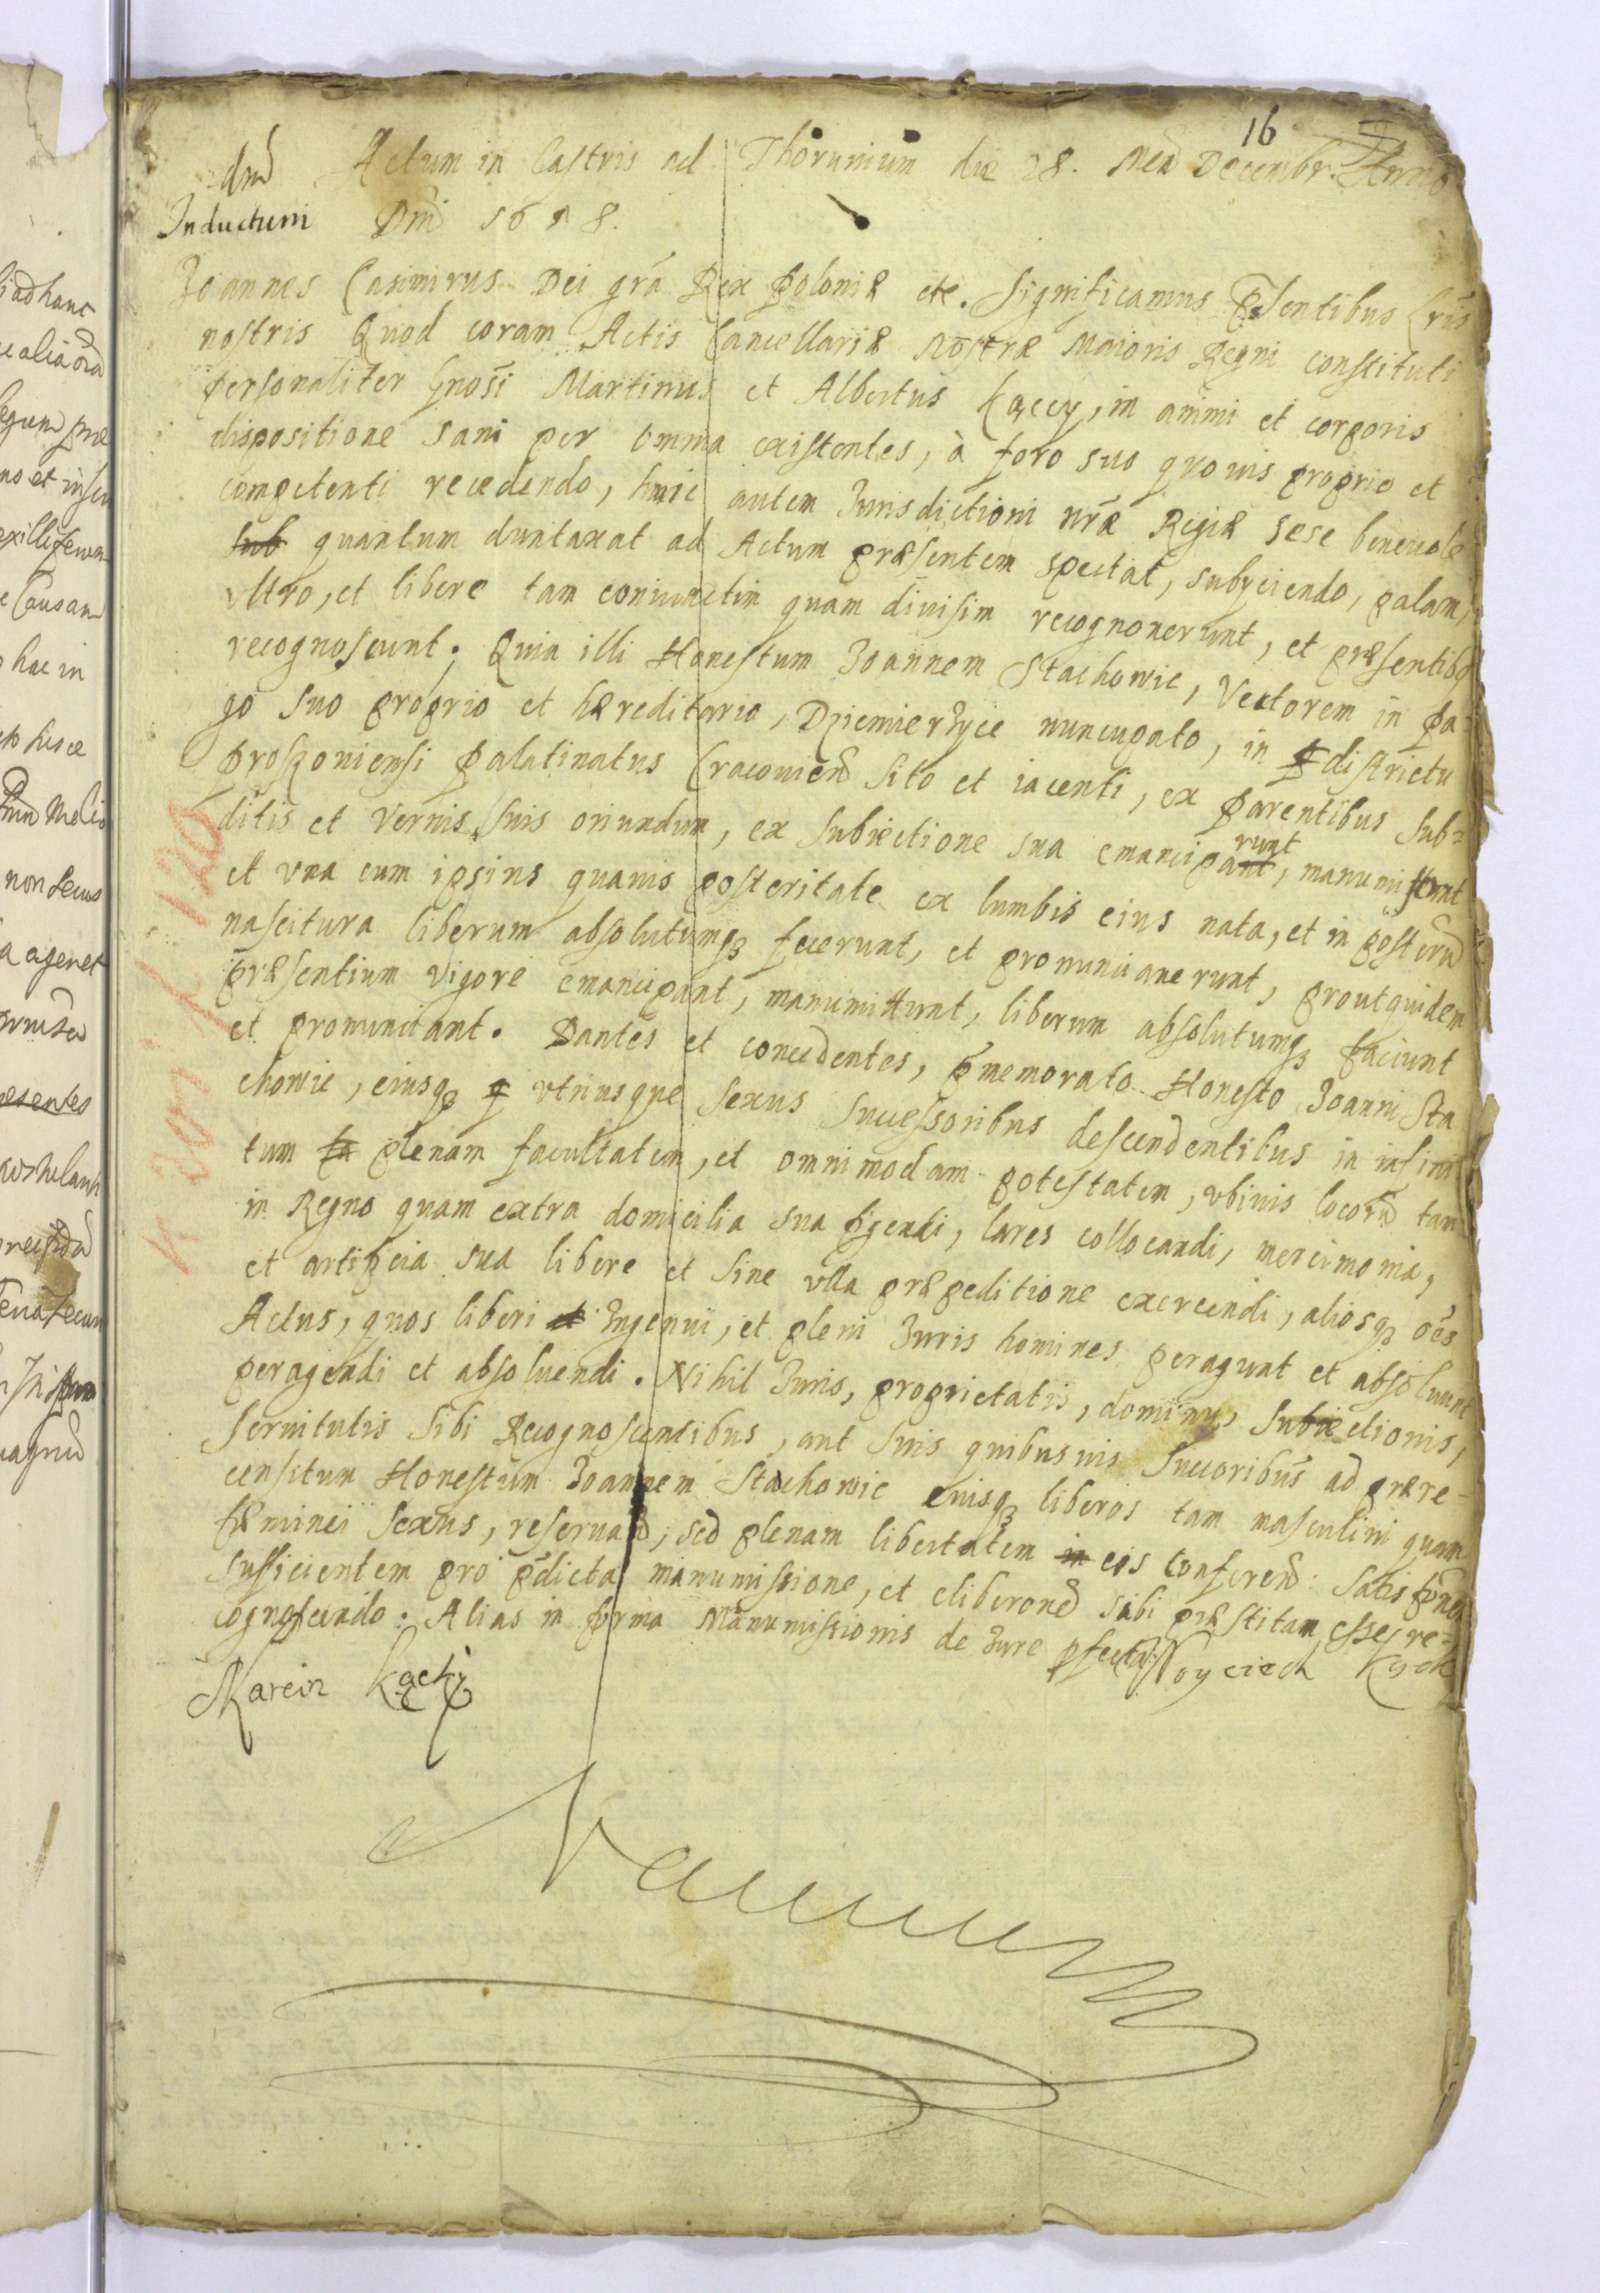 16
Actum in Castris ad Thorunium die 28. Decembr. Anno
Inductum Dni 1658.
Joannes Casimirus Dei gra Rex Poloniæ etc. Significamus Pntibus Lris
nostris Quod coram Actis Cancellariæ nostræ Maioris Regni constituti
personaliter Gnosi Martinus et Albertus Kąccy, in animi et corporis
dispositione sani per omnia existentes, à foro suo quouis proprio et
competenti recedendo, huic autem Iurisdictioni nræ Regiæ sese beneuole
sub quantum duntaxat ad Actum præsentem spectat, subyciendo, palam,
vltro, et libere tam coniunctim quam diuisim recognouerunt, et præsentibq
recognoscunt. Quia illi Honestum Joannem Stachowic, Vectorem in pa=
go suo proprio et hæreditario, Dziemierzyce nuncupato, in districtu
proszouiensi palatinatus Cracouien sito et iacenti, ex parentibus sub=
ditis et vernis suis oriundum, ex subiectione sua emanciparunt, manumiserunt
et vna cum ipsius quauis posteritate ex lumbis eius nata, et in posterū
nascitura liberum absolutumq3 fecerunt, et pronunciauerunt, proutquidem
præsentium vigore emancipant, manumittunt, liberum absolutumq3 faciunt
et pronunciant. Dantes et concedentes, pmemorato Honesto Joanni Sta
chowic, eiusq3 vtriusque sexus successoribus descendentibus in infini
tum plenam facultatem, et omnimodam potestatem, vbiuis locorū tam
in Regno quam extra domicilia sua figendi, lares collocandi, mercimonia,
et artificia sua libere et sine vlla præpeditione exercendi, aliosq3 oēs
Actus, quos liberi et Ingenui, et pleni Iuris homines peragunt et absoluunt
peragendi et absoluendi. Nihil Iuris, proprietatis, dominii, subiectionis,
seruitutis sibi Recognoscentibus, aut suis quibusuis succoribus ad prære=
censitum Honestum Joannem Stachowic eiusq3 liberos tam masculini quam
fæminei sexus, reseruand, sed plenam libertatem in eis conferend. Satisfonem
sufficientem pro pdicta manumissione, et eliberoned sibi præstitam esse re=
cognoscendo. Alias in forma Manumissionis de Iure pfecta.
Marcin Kącky Woyciech Kącky